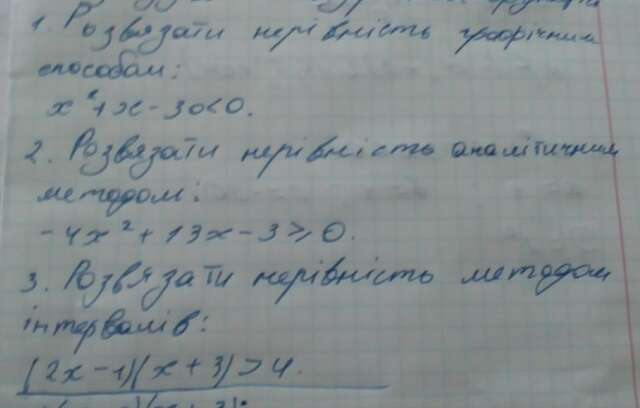 1. Розвязати нерівність графічним
способом:
x²+x-30<0.
2. Розвязати нерівність аналітичним
методом:
-4x²+13x-3≥0.
3. Розв'язати нерівність методом
інтервалів:
(2x-1)(x+3)>4.